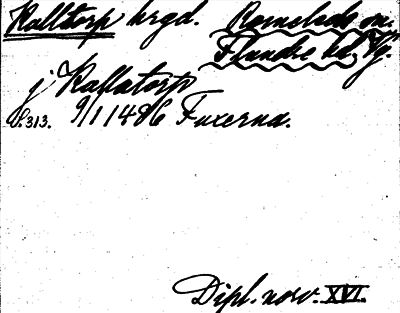 Kalltorp hrgd. Romeleds sn.
Flundre hd, Vg.
j Kallatorp
S.313. 9/1 1486 Fuxerna.
Dipl. norv. XVI.